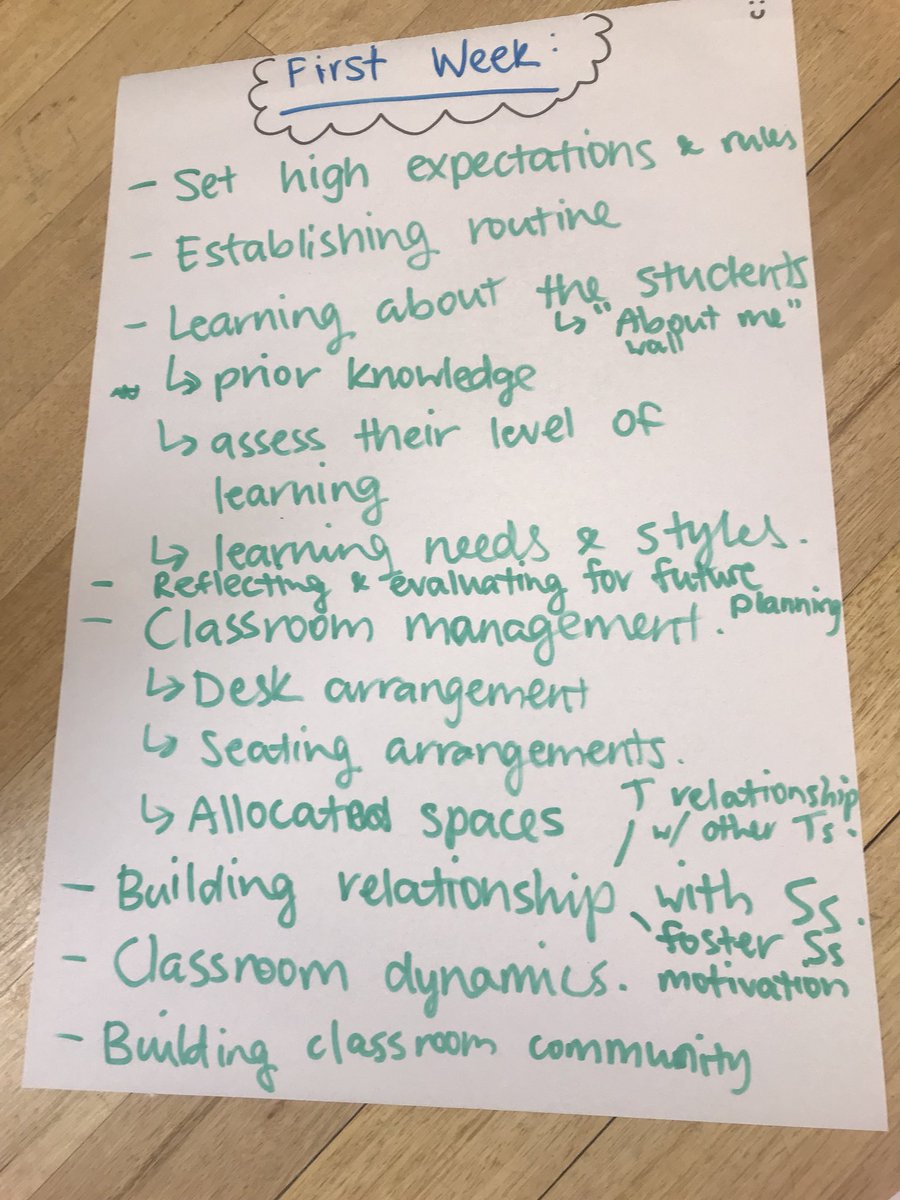 First Week:
- Set high expectations & rules
- Establishing routine
- Learning about the students
↳ "About me"
wall
↳ prior knowledge
↳ assess their level of
learning
↳ learning needs & styles.
- Reflecting & evaluating for future
planning
- Classroom management.
↳ Desk arrangement
↳ Seating arrangements.
↳ Allocated spaces
T relationship
w/ other Ts.
- Building relationship with Ss.
foster Ss
motivation
- Classroom dynamics.
- Building classroom community